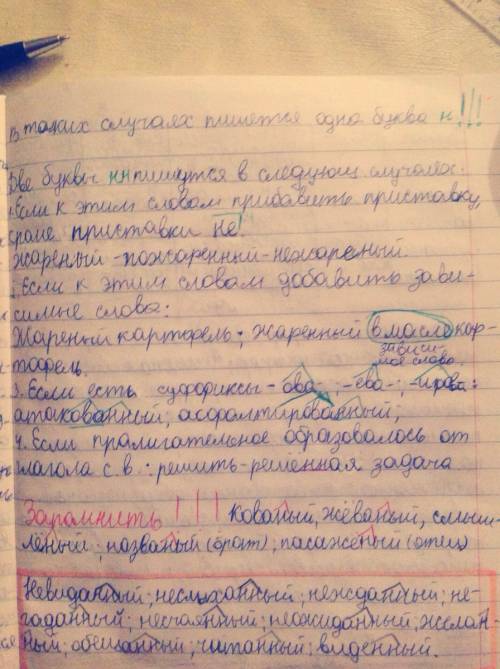 В таких случаях пишется одна буква н!!!
Две буквы нн пишутся в следующ случаях:
1. Если к этим словам прибавить приставку,
кроме приставки не.
Жареный - пожаренный - нежареный.
2. Если к этим словам добавить зави-
симые слова:
Жареный картофель; жаренный в масле кар-
тофель.
зависи-
мое слово
3. Если есть суффиксы -ова-; -ева-; -ирова:
атакованный, асфалтированный;
4. Если прилигательное образовалось от
глагола с.в.: решить - решённая задача
Запомнить !!! Кованый, жёваный, смыш-
лёный; названый (брат), посаженый (отец)
Невиданный; неслыханный; нежданный; не-
гаданный; нечаянный; неожиданный; желан-
ный; обещанный; читанный; виденный.